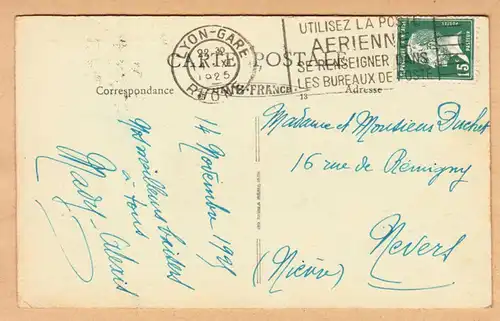 LYON-GARE
1925
RHÔNE
UTILISEZ LA POSTE
AERIENNE
SE RENSEIGNER
LES BUREAUX DE POSTE
15
CARTE POSTALE
FRANCE
13
Correspondance
Adresse
14 Novembre 1925
Nos meilleurs baisers
à tous
Mary-Alexis
Madame et Monsieur Duchet
16 rue de Rémigny
Nevers
(Nièvre)